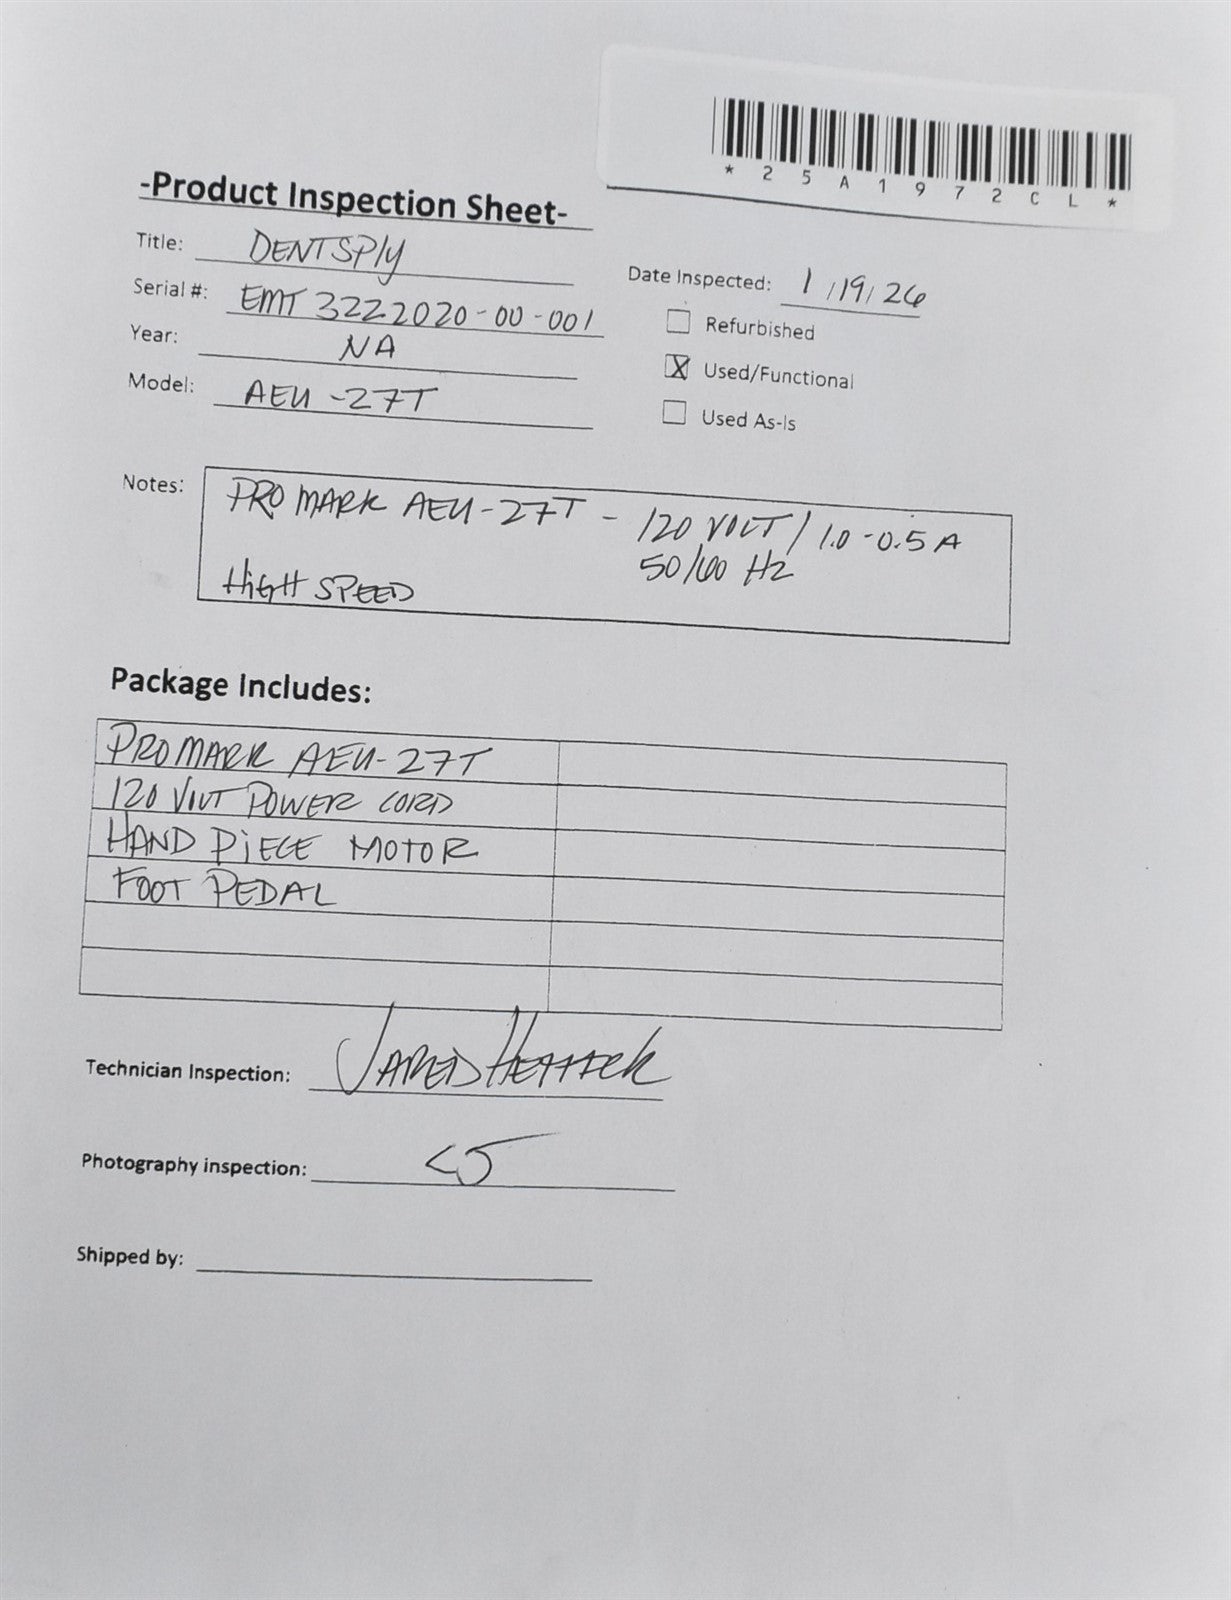 *25A1972CL*
-Product Inspection Sheet-
Title: DENTSPly
Date Inspected: 1/19/26
Serial #: EMT 3222020-00-001
Refurbished
Year: NA
X Used/Functional
Model: AEU-27T
Used As-Is
Notes: PROMARK AEU-27T - 120 VOLT / 1.0-0.5A
50/60 Hz
HiGH SPEED
Package Includes:
PROMARK AEU-27T
120 VOLT POWER CORD
HAND PiECE MOTOR
FOOT PEDAL
Technician Inspection: JARED
Photography inspection:
Shipped by: